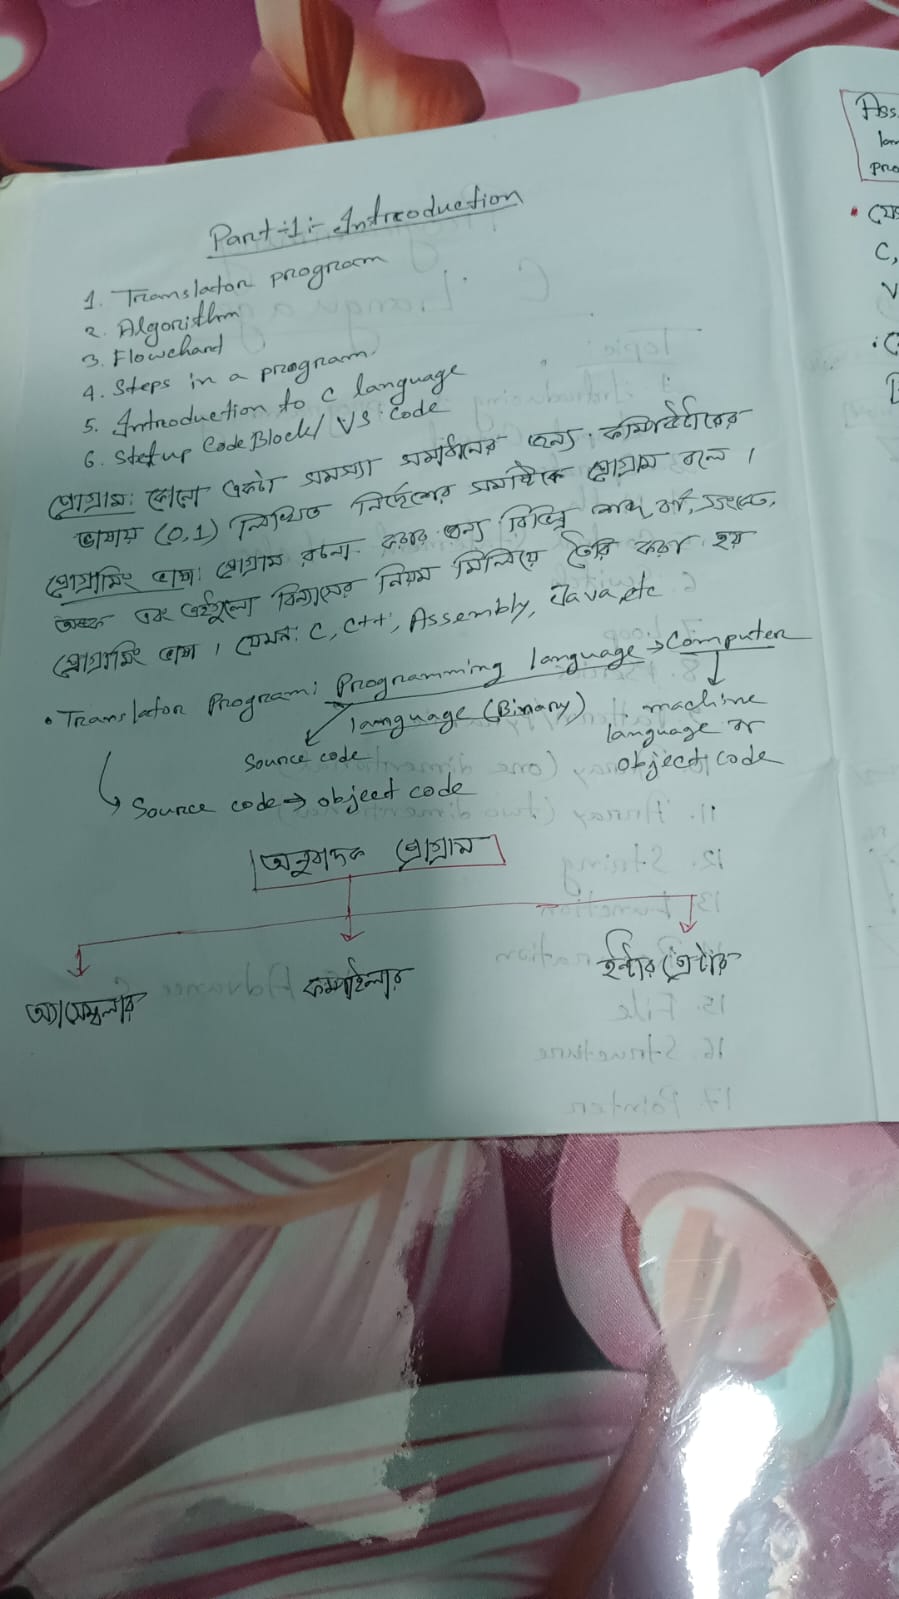 Part-1:- Introduction
1. Translator program
2. Algorithm
3. Flowchard
4. Steps in a program.
5. Introduction to C language
6. Stetup CodeBlock/ VS code
প্রোগ্রাম: কোনো একটা সমস্যা সমাধানের জন্য কম্পিউটারের
ভাষায় (0,1) লিখিত নির্দেশের সমষ্টিকে প্রোগ্রাম বলে।
প্রোগ্রামিং ভাষা: প্রোগ্রাম রচনা করার জন্য বিভিন্ন শব্দ, বর্ণ, সংকেত,
অঙ্ক এবং এইগুলো বিন্যাসের নিয়ম মিলিয়ে তৈরি করা হয়
প্রোগ্রামিং ভাষা। যেমন: C, C++, Assembly, Java, etc
• Translator Program: Programming language → Computer
language (Binary)
Source code
machine
language or
object code
Source code → object code
অনুবাদক প্রোগ্রাম
অ্যাসেম্বলার
কম্পাইলার
ইন্টারপ্রেটার
Ass
lan
pro
C,
V